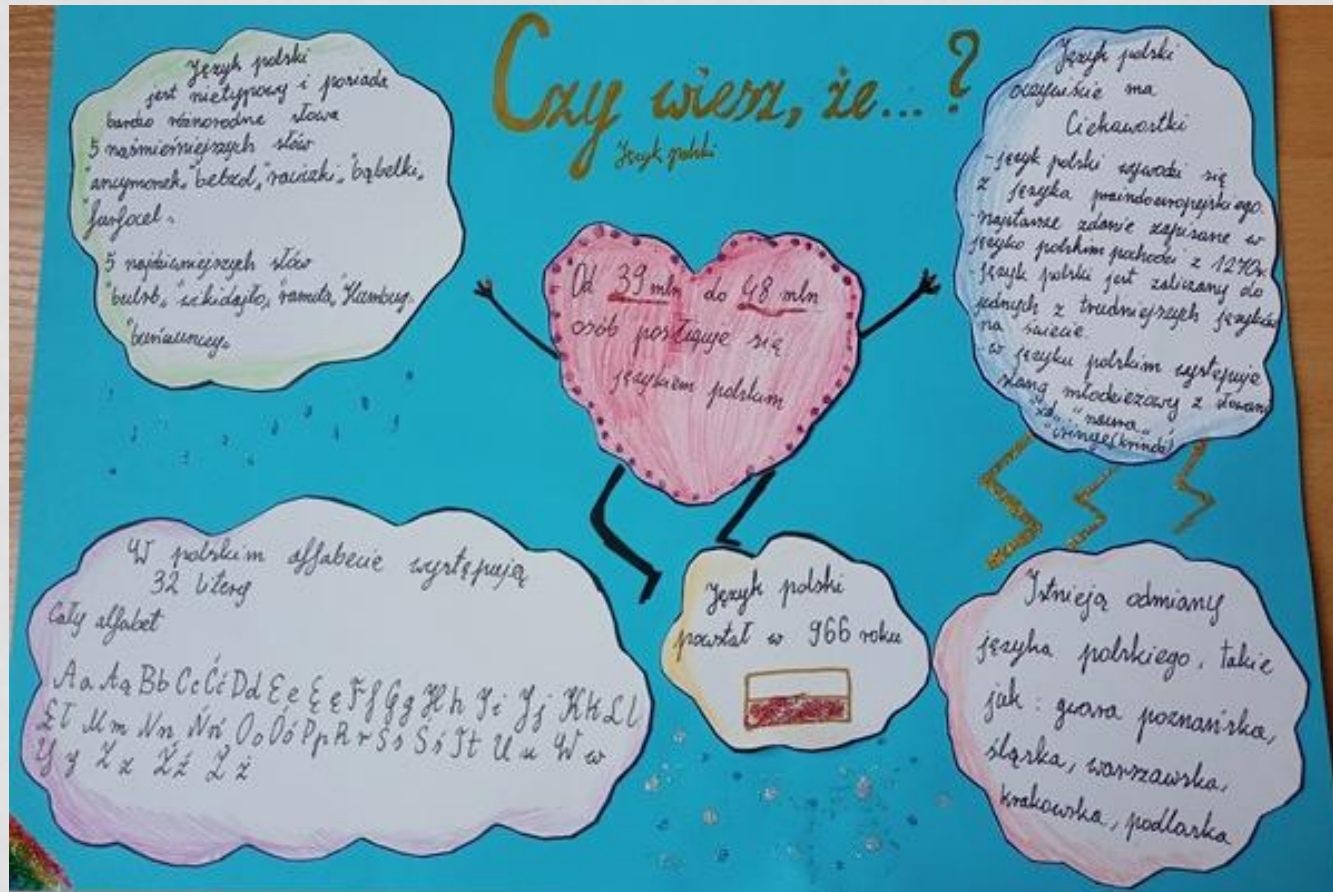 Czy wiesz, że...?
Język polski
Język polski
jest nietypowy i posiada
bardzo różnorodne słowa
5 naśmieśniejszych słów
"ancymonek," "betzol," "raciczki," "bąbelki,"
"farfocel"
5 najdziwniejszych słów
"ramota," "Humbug"
Od 39 mln do 48 mln
osób posługuje się
językiem polskim
Język polski
oczywiście ma
Ciekawostki
- język polski wywodzi się
z języka praindoeuropejskiego.
- najstarsze zdanie zapisane w
języko polskim pochodzi z 1270r.
- język polski jest zaliczany do
jednych z trudniejszych języków
na świecie.
- w języku polskim występuje
slang młodzieżowy z słowami
"xd"
W polskim alfabecie występują
32 litery
Cały alfabet
Aa Aą Bb Cc Ćć Dd Ee Ęę Ff Gg Hh Ii Jj Kk Ll
Łł Mm Nn Ńń Oo Óó Pp Rr Ss Śś Tt Uu Ww
Yy Zz Źź Żż
Język polski
powstał w 966 roku
Istnieją odmiany
języka polskiego, takie
jak: gwara poznańska,
śląska, warszawska,
krakowska, podlaska